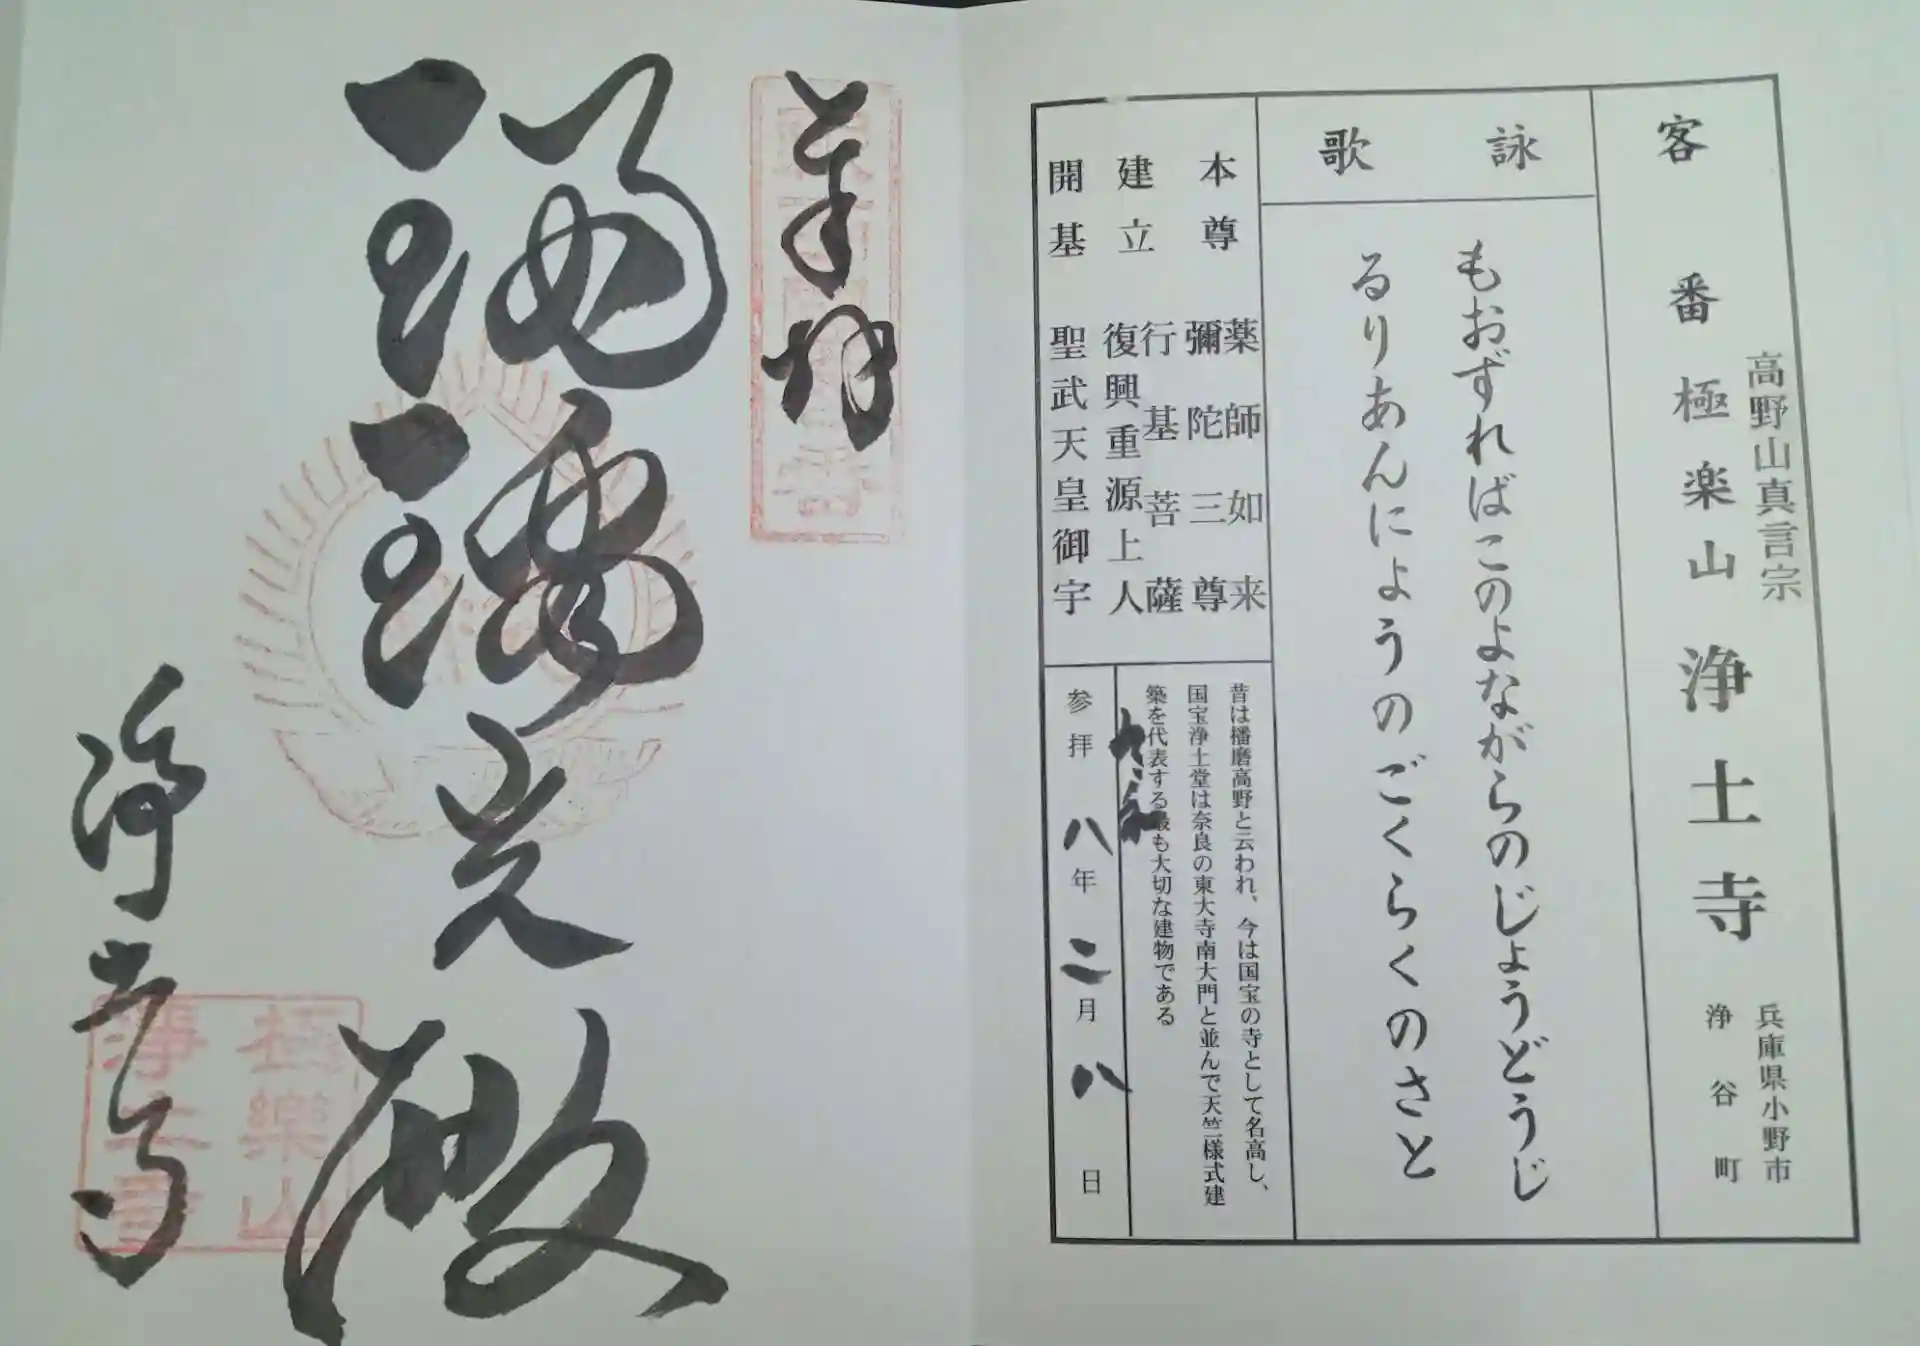 客番 極楽山 浄土寺
高野山真言宗
兵庫県小野市
浄谷町
詠歌
もおずればこのよながらのじょうどうじ
るりあんにようのごくらくのさと
本尊 薬師如来
彌陀三尊
建立 行基菩薩
復興重源上人
開基 聖武天皇御宇
昔は播磨高野と云われ、今は国宝の寺として名高し、
国宝浄土堂は奈良の東大寺南大門と並んで天竺様式建
築を代表する最も大切な建物である
令和
参拝 八年 二月 八日
奉拝
瑠璃光殿
浄土寺
極楽山
浄土寺